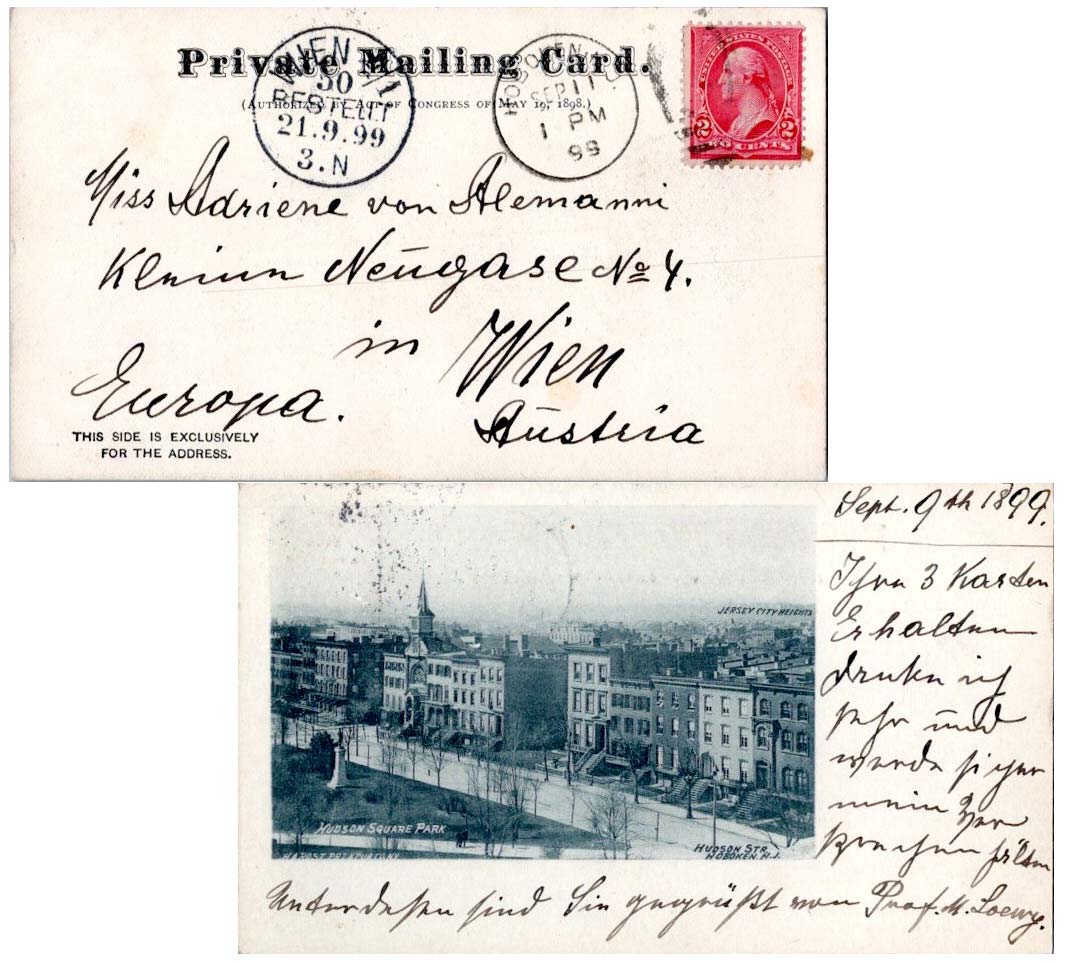 Private Mailing Card.
(Authorized by Act of Congress of May 19, 1898.)
WIEN 4/1
50
BESTELLT
21.9.99
3.N
HOBOKEN, N.J.
SEP 11
1 PM
99
UNITED STATES POSTAGE
2 2
TWO CENTS
Miss Adriene von Alemanni
Kleine Neugase No 4.
in Wien
Europa.
Austria
THIS SIDE IS EXCLUSIVELY
FOR THE ADDRESS.
Sept. 9th 1899.
Ihre 3 Karten
Erhalten
danke ich
sehr und
werde sicher
mein Ver
sprechen hälten
JERSEY CITY HEIGHTS
HUDSON SQUARE PARK
HUDSON STR.
HOBOKEN. N.J.
Unterdeßen sind Sie gegrüßt von Prof. M. Loewy.